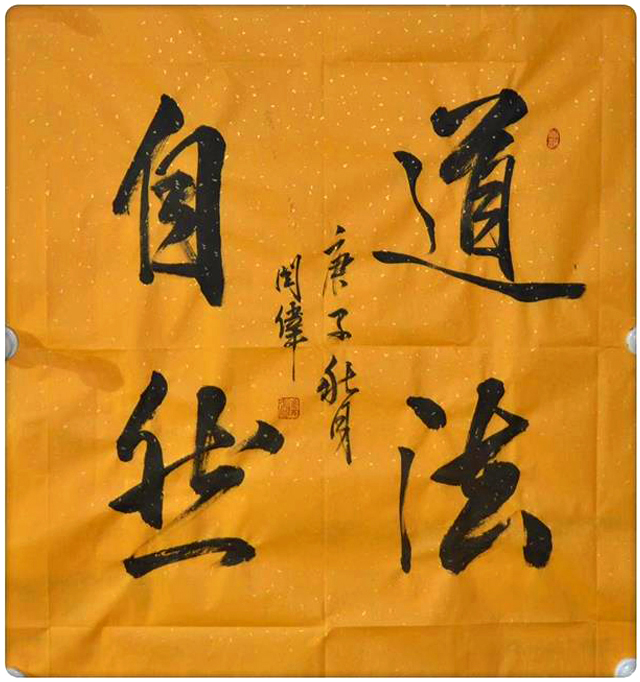 道法
自然
庚子秋月
閆偉